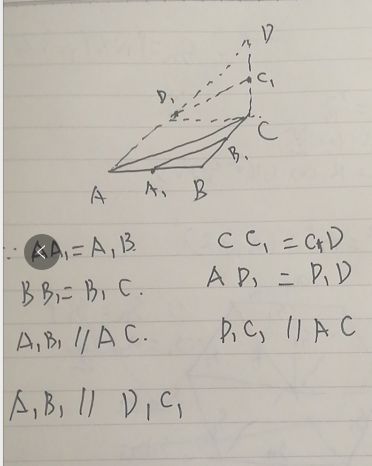 D
C₁
D₁
C
B₁
A A₁ B
∵ AA₁ = A₁B. CC₁ = C₁D
BB₁ = B₁C. AD₁ = D₁D
A₁B₁ // AC. D₁C₁ // AC
A₁B₁ // D₁C₁